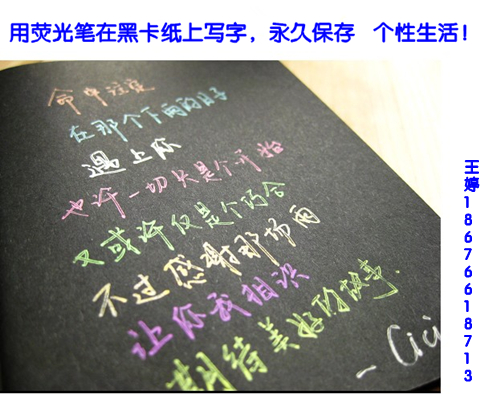 用荧光笔在黑卡纸上写字，永久保存 个性生活！
命中注定
在那个下雨的日子
遇上你
也许一切只是个开始
又或许仅是个巧合
不过感谢那场雨
让你我相识
期待美好的故事.
- Cici
王婷18676618713